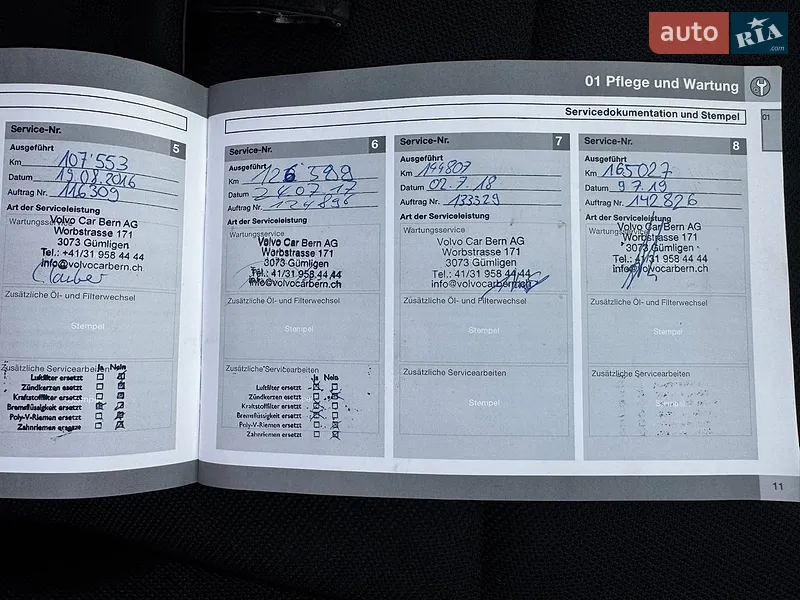 auto RIA .com
01 Pflege und Wartung
Servicedokumentation und Stempel
01
Service-Nr. 5
Ausgeführt
Km 107'553
Datum 19.08.2016
Auftrag Nr. 116309
Art der Serviceleistung
Wartungsservice
Volvo Car Bern AG
Worbstrasse 171
3073 Gümligen
Tel.: +41/31 958 44 44
info@volvocarbern.ch
Zusätzliche Öl- und Filterwechsel
Stempel
Zusätzliche Servicearbeiten
Ja Nein
Luftfilter ersetzt
Zündkerzen ersetzt
Kraftstoffilter ersetzt
Bremsflüssigkeit ersetzt
Poly-V-Riemen ersetzt
Zahnriemen ersetzt
Service-Nr. 6
Ausgeführt
Km 126'399
Datum 24.07.17
Auftrag Nr. 124896
Art der Serviceleistung
Wartungsservice
Volvo Car Bern AG
Worbstrasse 171
3073 Gümligen
Tel.: 41/31 958 44 44
info@volvocarbern.ch
Zusätzliche Öl- und Filterwechsel
Stempel
Zusätzliche Servicearbeiten
Ja Nein
Luftfilter ersetzt
Zündkerzen ersetzt
Kraftstoffilter ersetzt
Bremsflüssigkeit ersetzt
Poly-V-Riemen ersetzt
Zahnriemen ersetzt
Service-Nr. 7
Ausgeführt
Km 144807
Datum 02.7.18
Auftrag Nr. 133329
Art der Serviceleistung
Wartungsservice
Volvo Car Bern AG
Worbstrasse 171
3073 Gümligen
Tel.: 41/31 958 44 44
info@volvocarbern.ch
Zusätzliche Öl- und Filterwechsel
Stempel
Zusätzliche Servicearbeiten
Stempel
Service-Nr. 8
Ausgeführt
Km 165027
Datum 9.7.19
Auftrag Nr. 142826
Art der Serviceleistung
Wartungsservice
Volvo Car Bern AG
Worbstrasse 171
3073 Gümligen
Tel.: 41/31 958 44 44
info@volvocarbern.ch
Zusätzliche Öl- und Filterwechsel
Stempel
Zusätzliche Servicearbeiten
Stempel
11